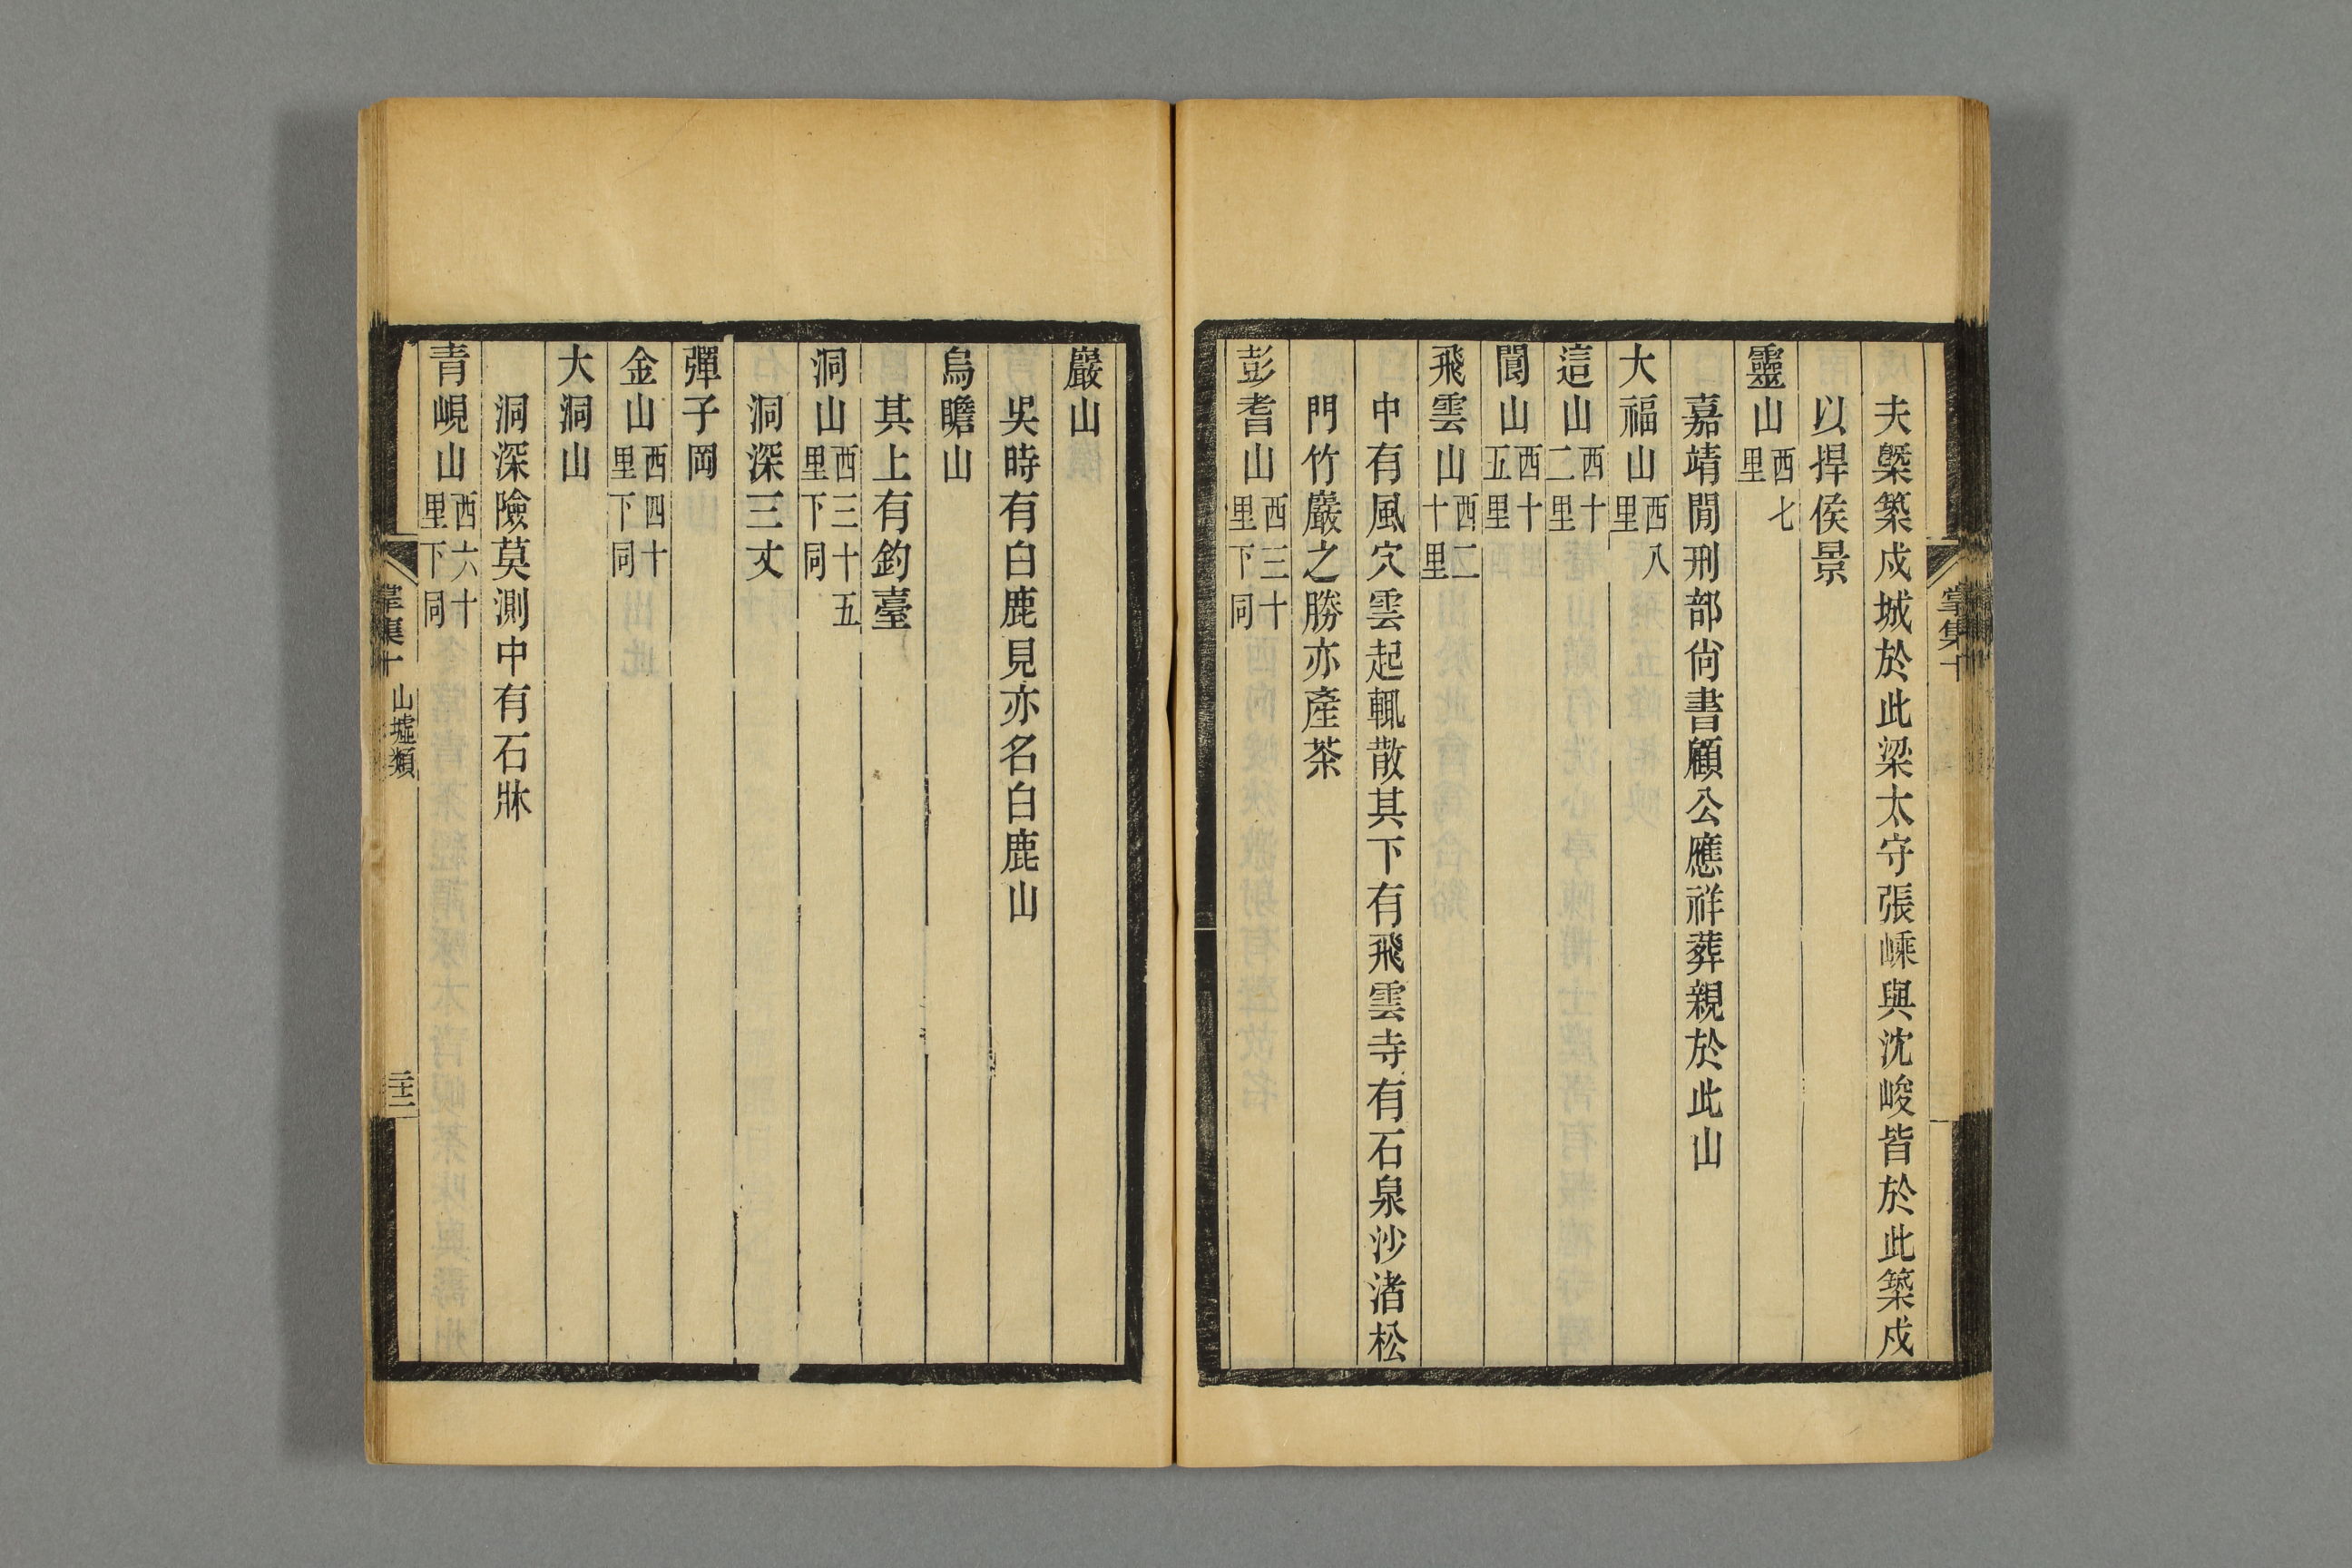 夫槩築戍城於此梁太守張嵊與沈峻皆於此築戍
以捍侯景
靈山西七里
嘉靖閒刑部尙書顧公應祥葬親於此山
大福山西八里
這山西十二里
閬山西十五里
飛雲山西二十里
中有風穴雲起輒散其下有飛雲寺有石泉沙渚松
門竹巖之勝亦產茶
彭耆山西三十里下同
巖山
吳時有白鹿見亦名白鹿山
烏瞻山
其上有釣臺
洞山西三十五里下同
洞深三丈
彈子岡
金山西四十里下同
大洞山
洞深險莫測中有石牀
青峴山西六十里下同
掌集十 山墟類 二十二